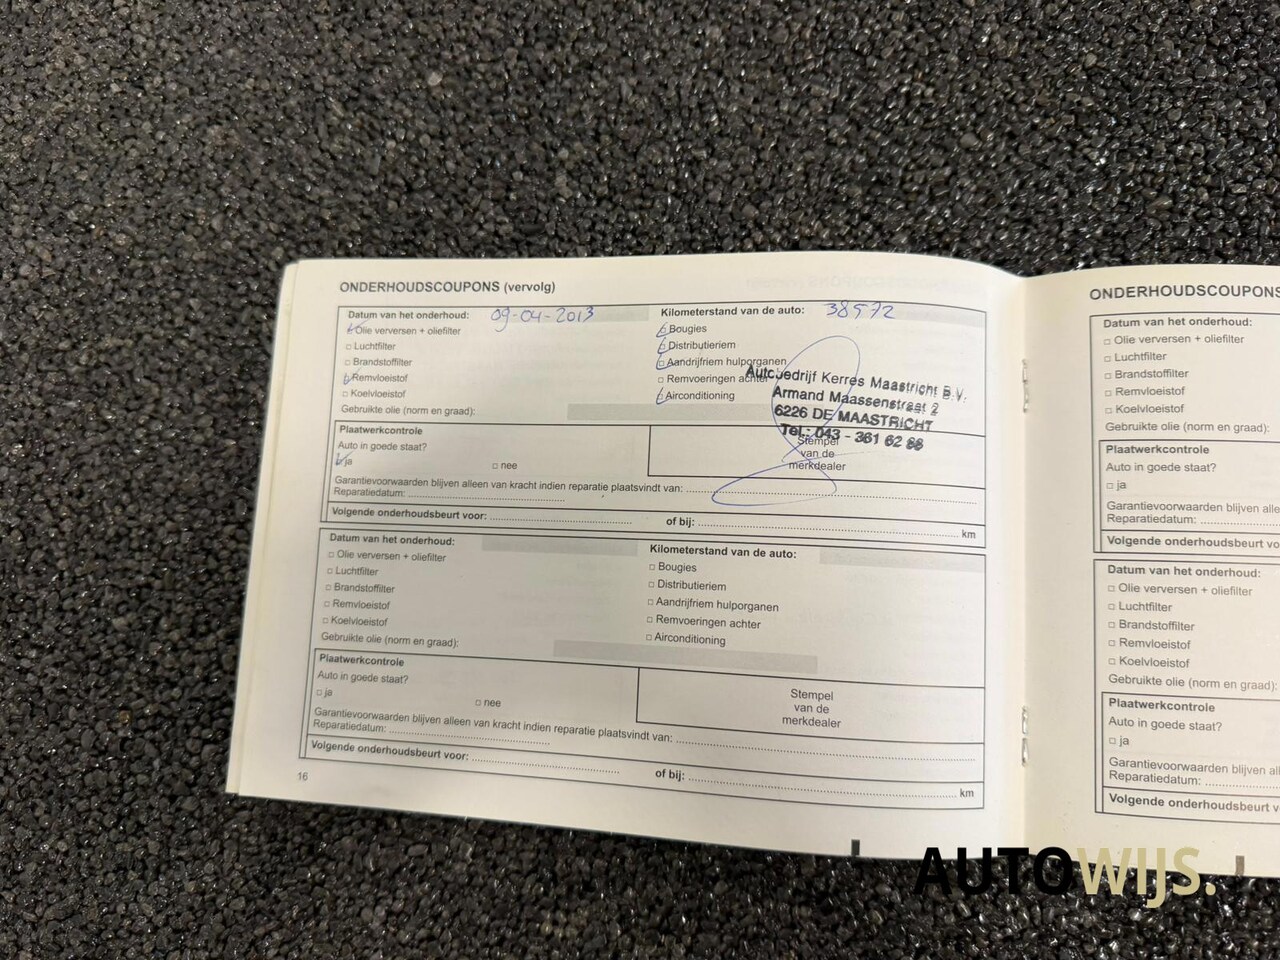 ONDERHOUDSCOUPONS (vervolg)
Datum van het onderhoud: 09-04-2013
Kilometerstand van de auto: 38572
Olie verversen + oliefilter
Luchtfilter
Brandstoffilter
Remvloeistof
Koelvloeistof
Gebruikte olie (norm en graad):
Bougies
Distributieriem
Aandrijfriem hulporganen
Remvoeringen achter
Airconditioning
Autobedrijf Kerres Maastricht B.V.
Armand Maassenstraat 2
6226 DE MAASTRICHT
Tel.: 043 - 361 62 88
Plaatwerkcontrole
Auto in goede staat?
ja
nee
Stempel
van de
merkdealer
Garantievoorwaarden blijven alleen van kracht indien reparatie plaatsvindt van:
Reparatiedatum:
Volgende onderhoudsbeurt voor: of bij: km
Datum van het onderhoud:
Kilometerstand van de auto:
Olie verversen + oliefilter
Luchtfilter
Brandstoffilter
Remvloeistof
Koelvloeistof
Gebruikte olie (norm en graad):
Bougies
Distributieriem
Aandrijfriem hulporganen
Remvoeringen achter
Airconditioning
Plaatwerkcontrole
Auto in goede staat?
ja
nee
Stempel
van de
merkdealer
Garantievoorwaarden blijven alleen van kracht indien reparatie plaatsvindt van:
Reparatiedatum:
Volgende onderhoudsbeurt voor: of bij: km
16
ONDERHOUDSCOUPONS
Datum van het onderhoud:
Olie verversen + oliefilter
Luchtfilter
Brandstoffilter
Remvloeistof
Koelvloeistof
Gebruikte olie (norm en graad):
Plaatwerkcontrole
Auto in goede staat?
ja
Garantievoorwaarden blijven alle
Reparatiedatum:
Volgende onderhoudsbeurt vo
Datum van het onderhoud:
Olie verversen + oliefilter
Luchtfilter
Brandstoffilter
Remvloeistof
Koelvloeistof
Gebruikte olie (norm en graad):
Plaatwerkcontrole
Auto in goede staat?
ja
Garantievoorwaarden blijven all
Reparatiedatum:
Volgende onderhoudsbeurt v
AUTOWIJS.